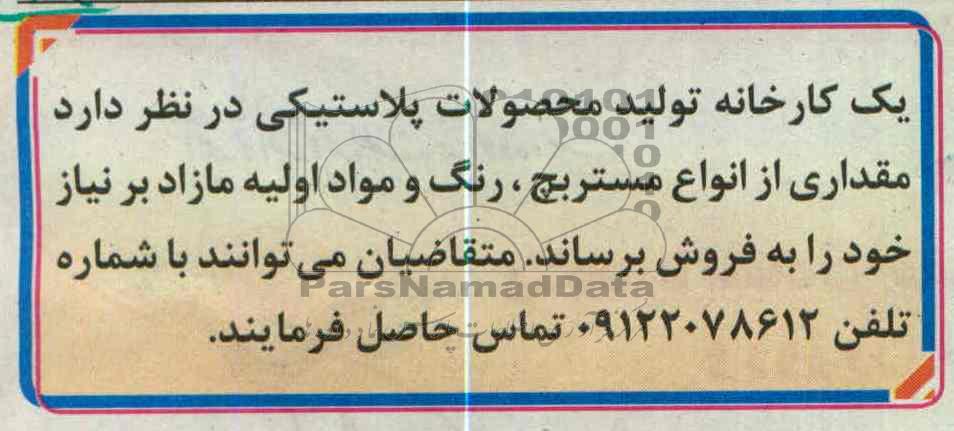 یک کارخانه تولید محصولات پلاستیکی در نظر دارد
مقداری از انواع مستربچ، رنگ و مواد اولیه مازاد بر نیاز
خود را به فروش برساند. متقاضیان می‌توانند با شماره
تلفن ۰۹۱۲۲۰۷۸۶۱۲ تماس حاصل فرمایند.
ParsNamadData